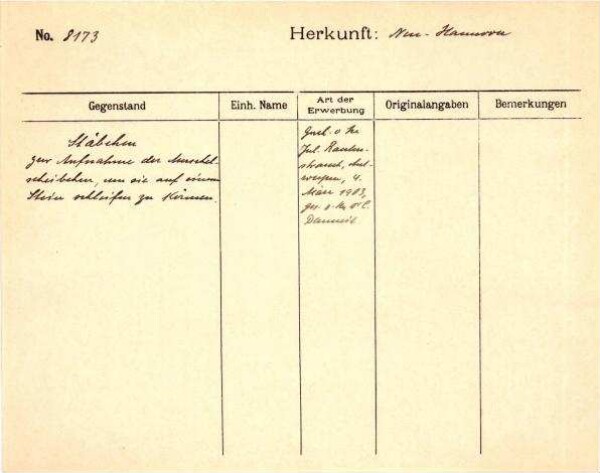 No. 8173
Herkunft: Neu-Hannover
Gegenstand
Einh. Name
Art der Erwerbung
Originalangaben
Bemerkungen
Stäbchen
zur Aufnahme der Muschel
scheibchen, um sie auf einem
Stein schleifen zu können.
Jul. Rauten-
strauch, Ant-
werpen, 4.
März 1903,